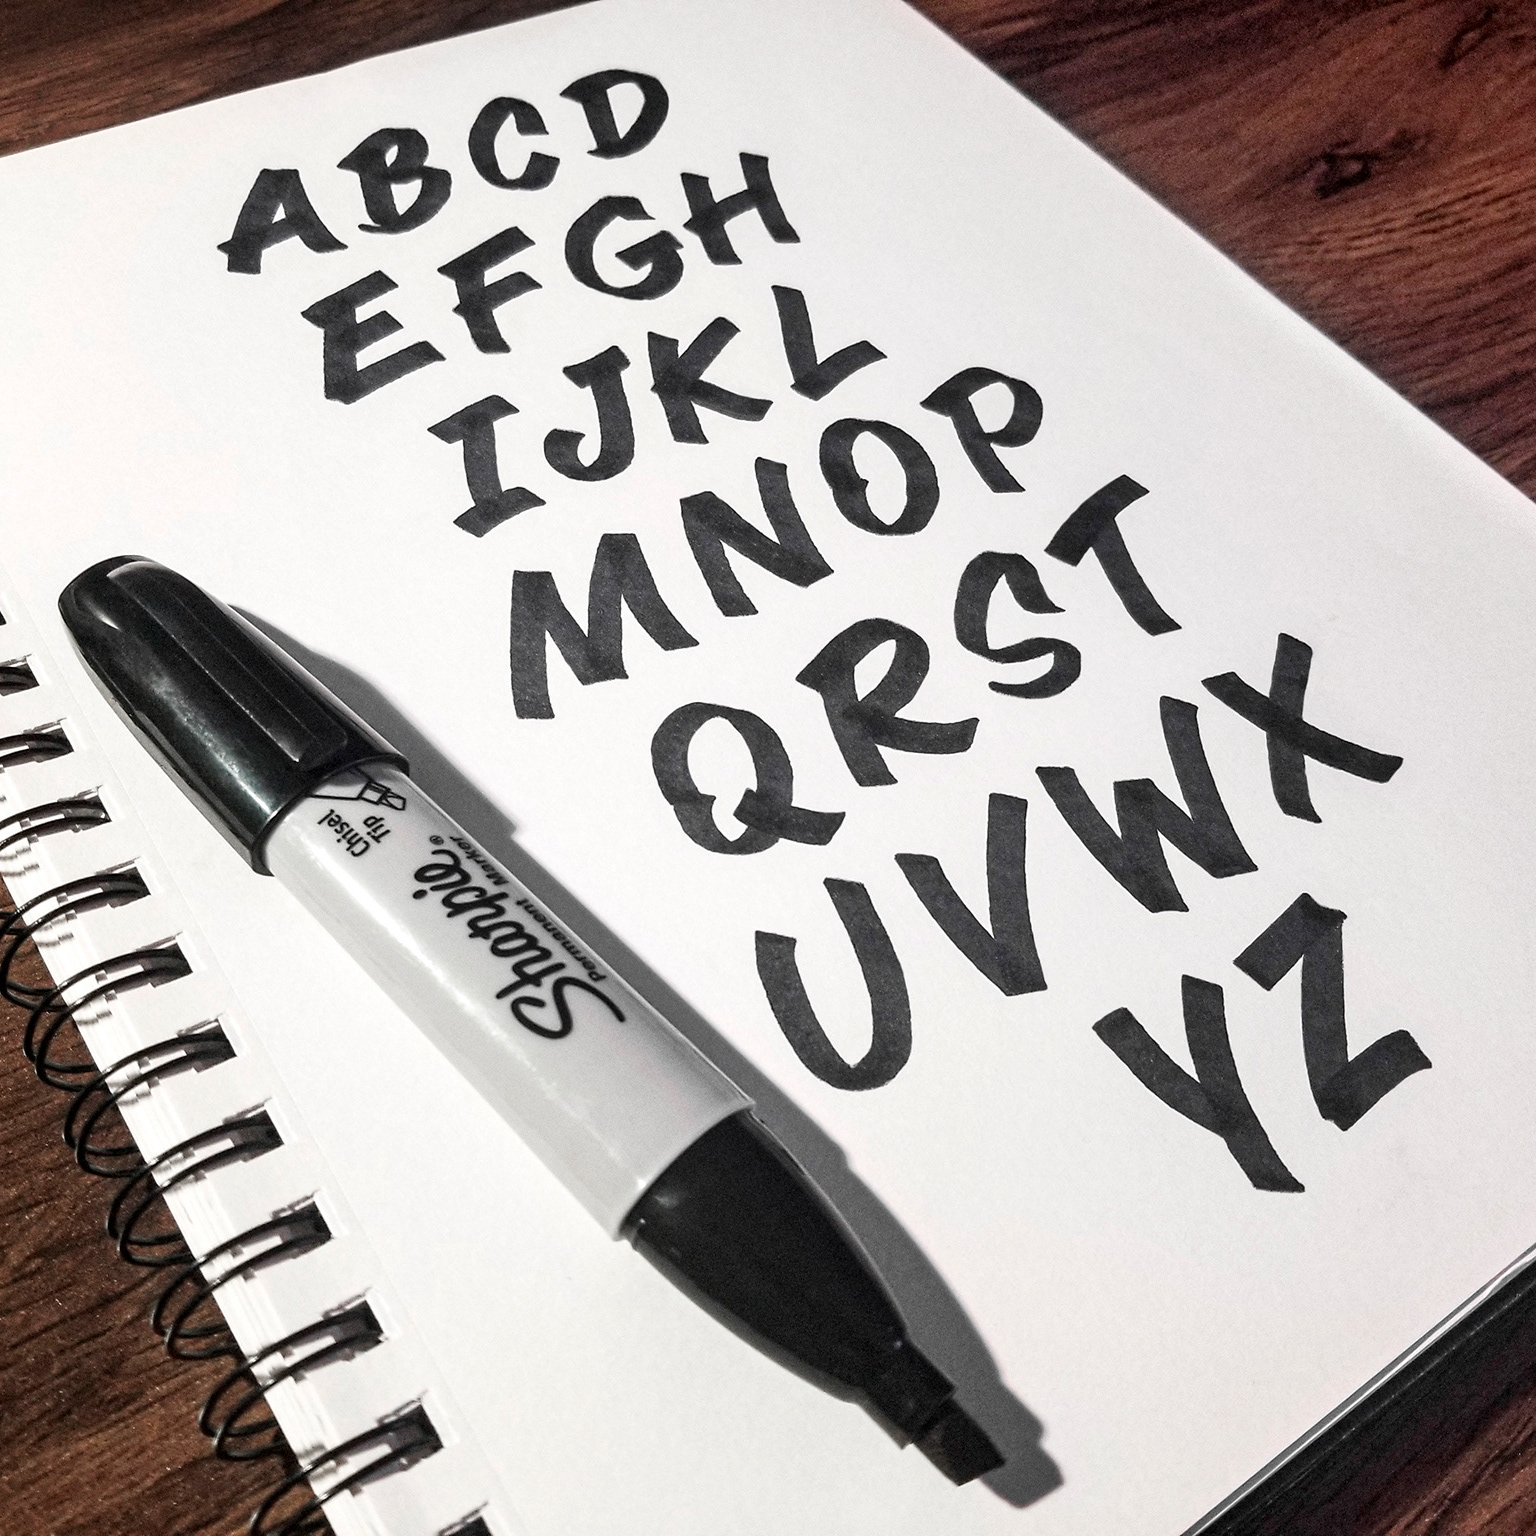 ABCD
EFGH
IJKL
MNOP
QRST
UVWX
YZ
Sharpie®
Permanent Marker
Chisel
Tip